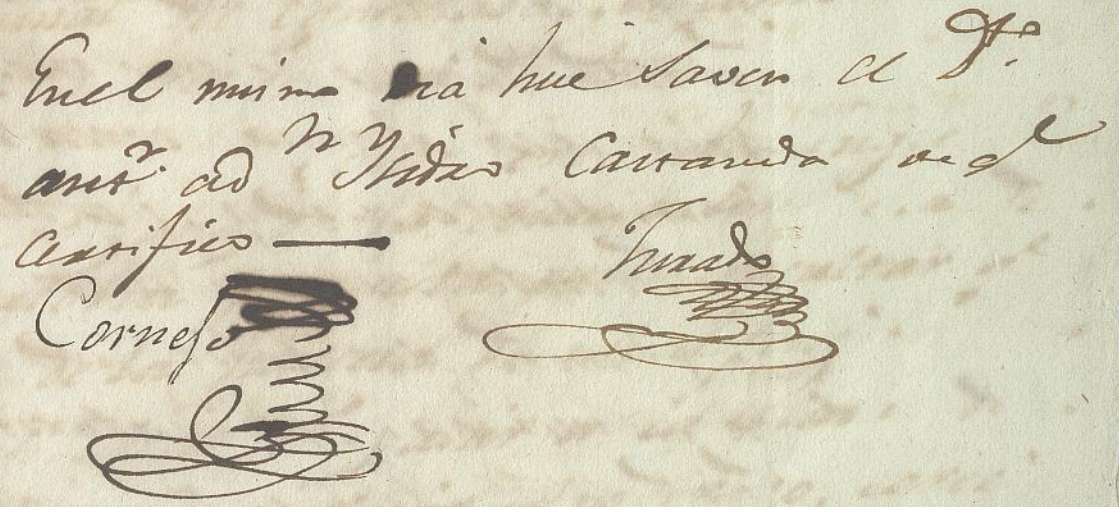 En el mismo dia hise Saver el D.to
antr. a D n Ysidro Castaneda de q.e
Certifico
Cornejo Jurado